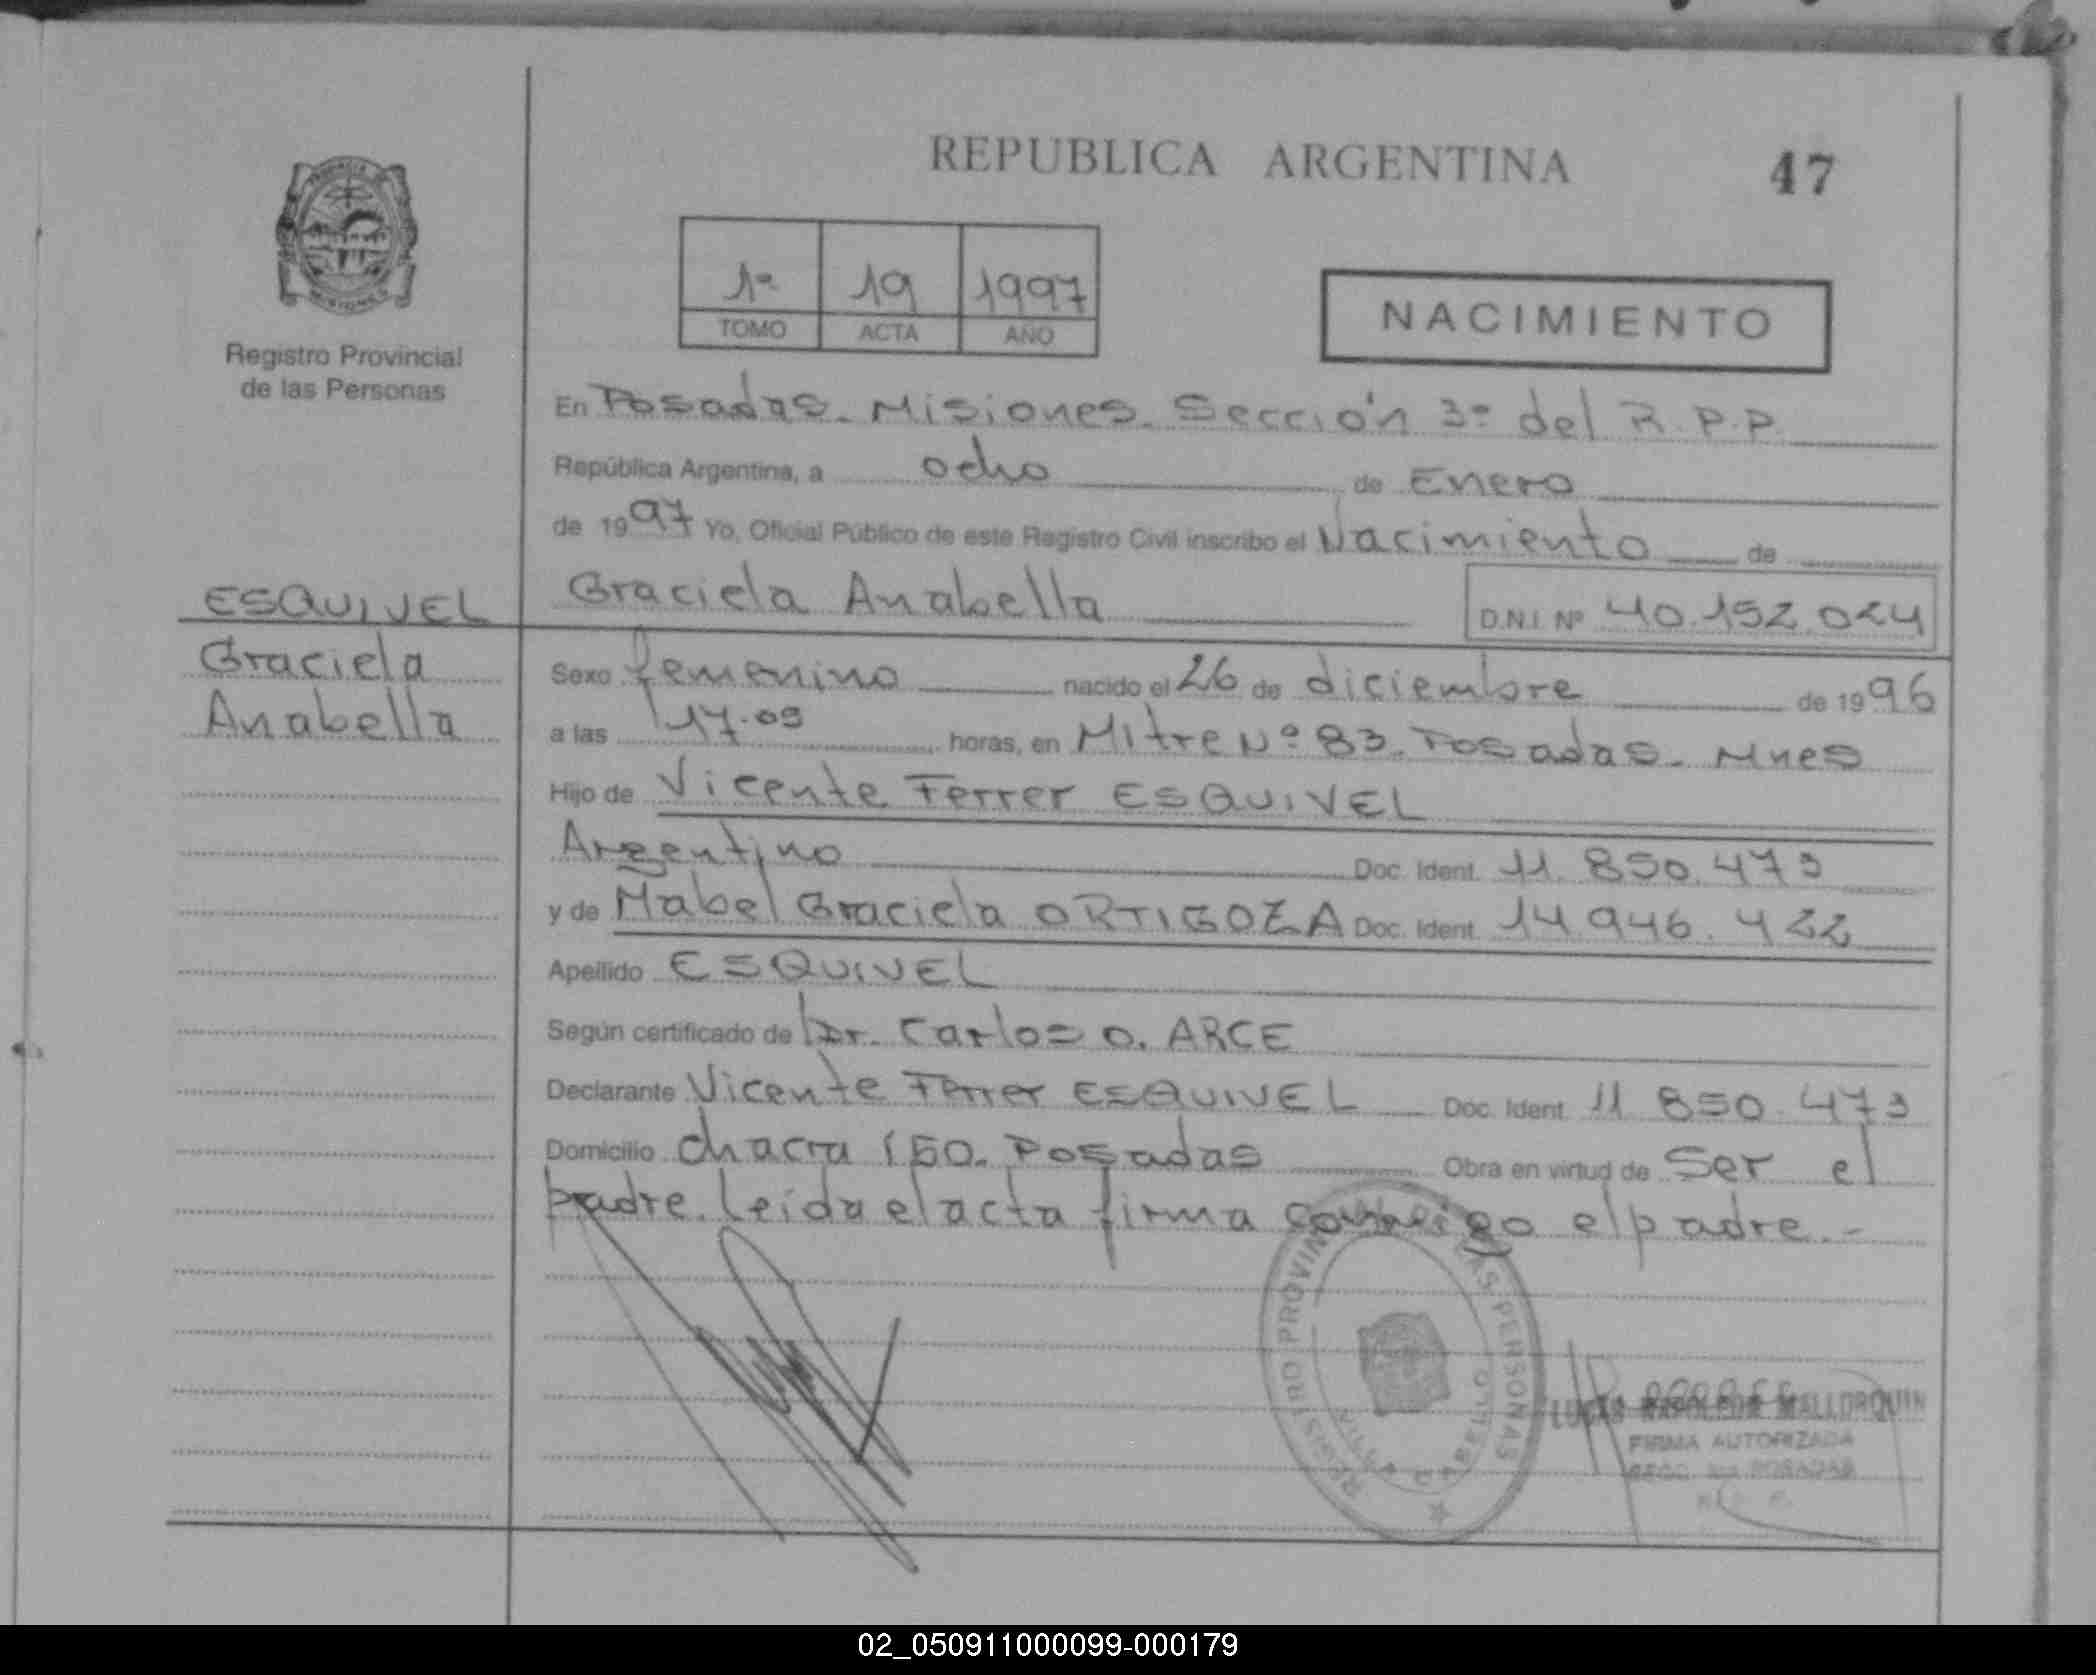 REPUBLICA ARGENTINA 47
1º 19 1997
TOMO ACTA AÑO
NACIMIENTO
Registro Provincial
de las Personas
En Posadas. Misiones. Sección 3º del R.P.P.
República Argentina, a ocho de Enero
de 1997 Yo, Oficial Público de este Registro Civil inscribo el Nacimiento de
Graciela Anabella D.N.I. Nº 40.152.024
ESQUIVEL
Graciela
Anabella
Sexo femenino nacido el 26 de diciembre de 1996
a las 17.05 horas, en Mitre Nº 83. Posadas. Mnes
Hijo de Vicente Ferrer ESQUIVEL
Argentino Doc. Ident. 11.850.473
y de Mabel Graciela ORTIGOZA Doc. Ident. 14.946.422
Apellido ESQUIVEL
Según certificado de Dr. Carlos O. ARCE
Declarante Vicente Ferrer ESQUIVEL Doc. Ident. 11.850.473
Domicilio chacra 150. Posadas Obra en virtud de Ser el
padre. Leida el acta firma conmigo el padre.-
REGISTRO PROVINCIAL PERSONAS
LUCAS MALLORQUIN
FIRMA AUTORIZADA
POSADAS
02_050911000099-000179